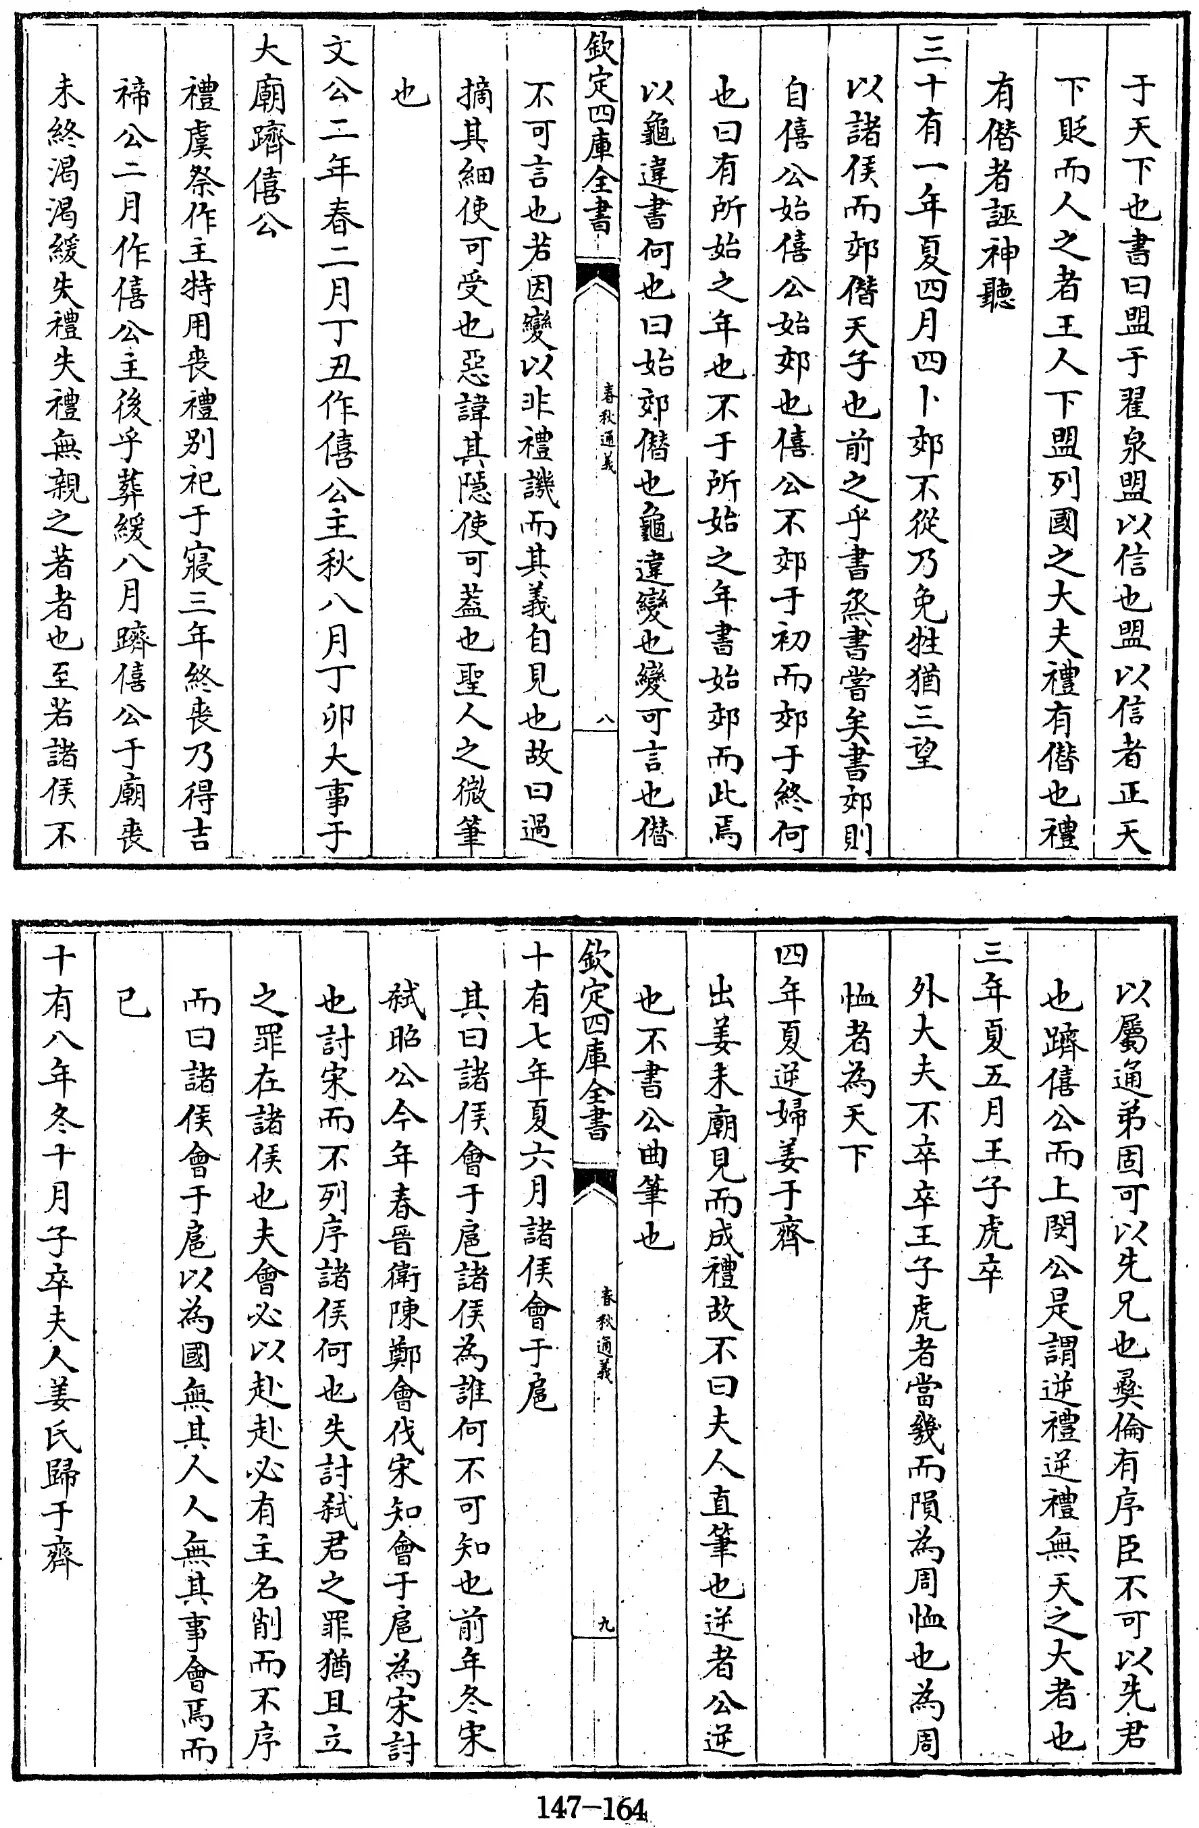 于天下也書曰盟于翟泉盟以信也盟以信者正天
下貶而人之者王人下盟列國之大夫禮有僭也禮
有僭者誣神聽
三十有一年夏四月四卜郊不從乃免牲猶三望
以諸侯而郊僭天子也前之乎書烝書嘗矣書郊則
自僖公始僖公始郊也僖公不郊于初而郊于終何
也曰有所始之年也不于所始之年書始郊而此焉
以龜違書何也曰始郊僭也龜違變也變可言也僭
欽定四庫全書
春秋通義
八
不可言也若因變以非禮譏而其義自見也故曰過
摘其細使可受也惡諱其隱使可蓋也聖人之微筆
也
文公二年春二月丁丑作僖公主秋八月丁卯大事于
大廟躋僖公
禮虞祭作主特用喪禮別祀于寢三年終喪乃得吉
禘公二月作僖公主後乎葬緩八月躋僖公于廟喪
未終渴渴緩失禮失禮無親之著者也至若諸侯不
以屬通弟固可以先兄也彛倫有序臣不可以先君
也躋僖公而上閔公是謂逆禮逆禮無天之大者也
三年夏五月王子虎卒
外大夫不卒卒王子虎者當幾而隕為周恤也為周
恤者為天下
四年夏逆婦姜于齊
出姜未廟見而成禮故不曰夫人直筆也逆者公逆
也不書公曲筆也
欽定四庫全書
春秋通義
九
十有七年夏六月諸侯會于扈
其曰諸侯會于扈諸侯為誰何不可知也前年冬宋
弑昭公今年春晉衛陳鄭會伐宋知會于扈為宋討
也討宋而不列序諸侯何也失討弑君之罪猶且立
之罪在諸侯也夫會必以赴赴必有主名削而不序
而曰諸侯會于扈以為國無其人人無其事會焉而
已
十有八年冬十月子卒夫人姜氏歸于齊
147-164